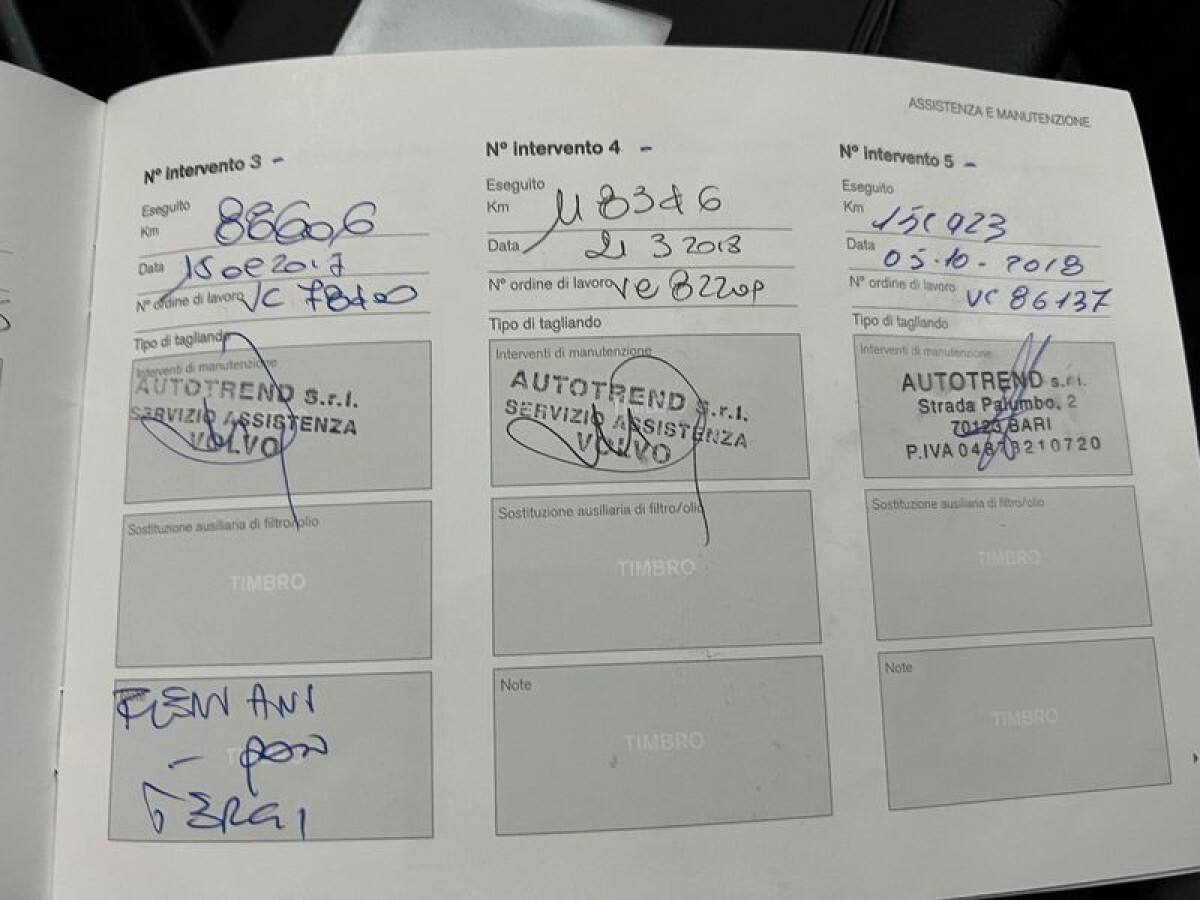 ASSISTENZA E MANUTENZIONE
N° intervento 3 -
Eseguito
Km 88606
Data
N° ordine di lavoro
Tipo di tagliando
Interventi di manutenzione
AUTOTREND S.r.l.
SERVIZIO ASSISTENZA
VOLVO
Sostituzione ausiliaria di filtro/olio
TIMBRO
N° intervento 4 -
Eseguito
Km 118346
Data 21 3 2018
N° ordine di lavoro
Tipo di tagliando
Interventi di manutenzione
AUTOTREND S.r.l.
SERVIZIO ASSISTENZA
VOLVO
Sostituzione ausiliaria di filtro/olio
TIMBRO
Note
TIMBRO
N° intervento 5 -
Eseguito
Km
Data 05-10-2018
N° ordine di lavoro VC 86137
Tipo di tagliando
Interventi di manutenzione
AUTOTREND s.r.l.
Strada Palumbo, 2
70123 BARI
P.IVA
Sostituzione ausiliaria di filtro/olio
TIMBRO
Note
TIMBRO